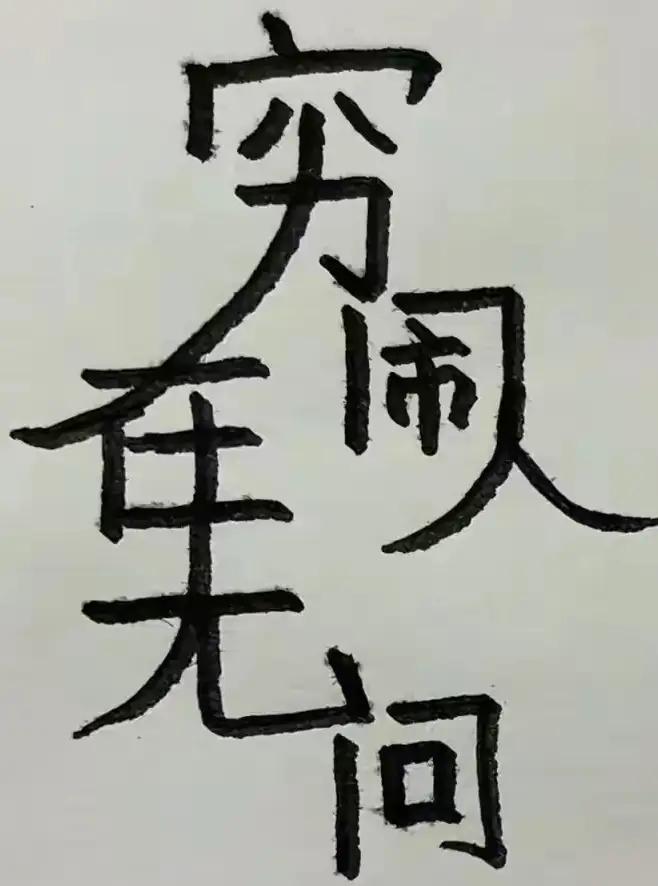 穷在闹市无人问